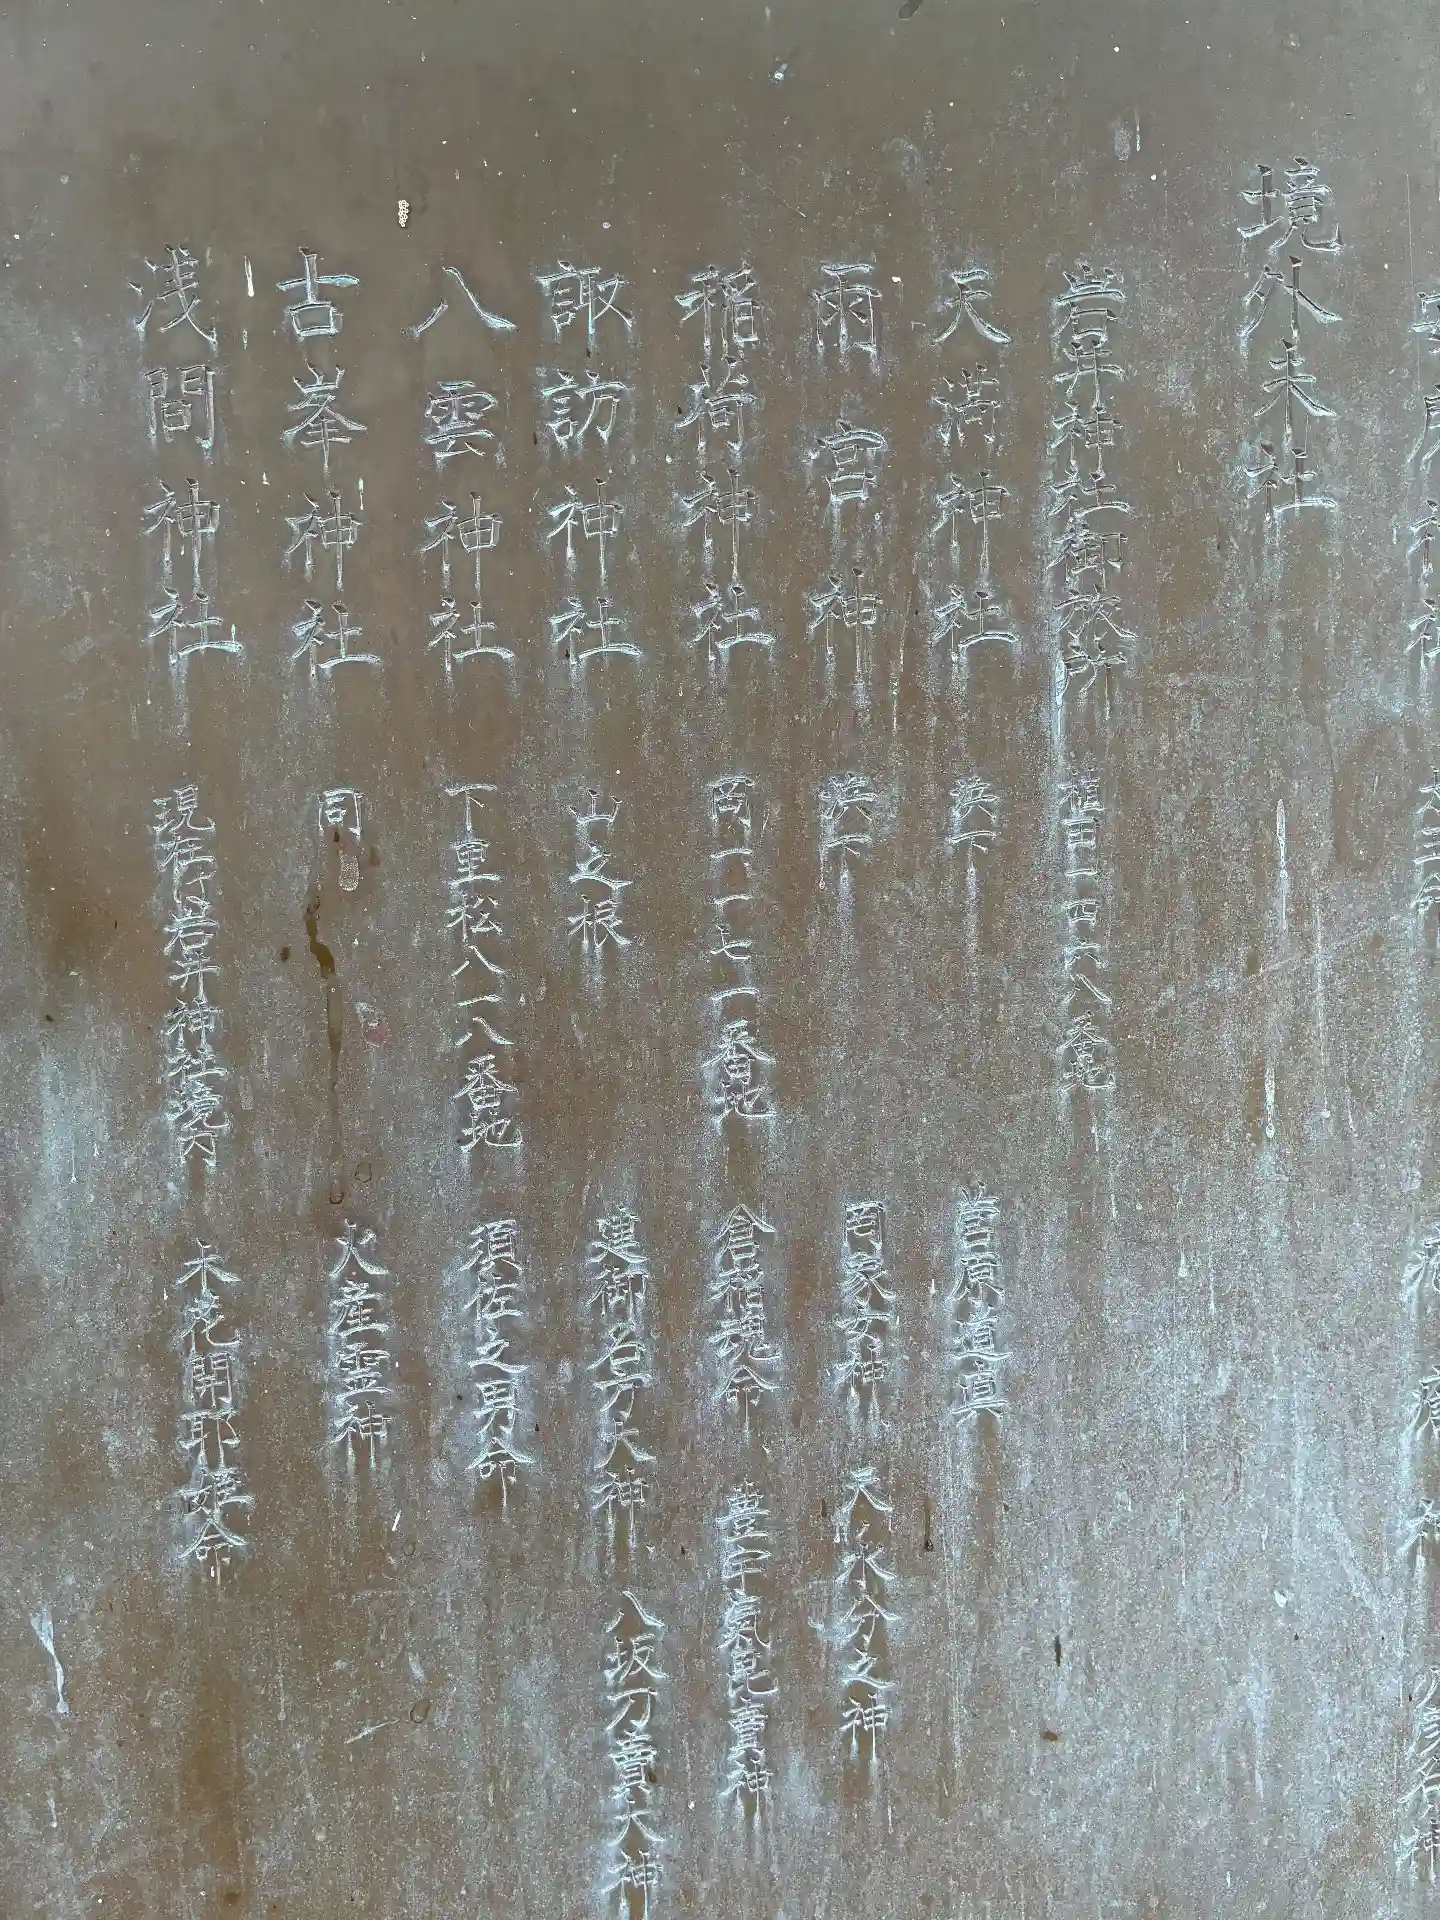 境外末社
岩井神社御旅所 植田一四六八番地
天満神社 浜下 菅原道真
雨宮神 浜下 罔象女神 天之水分之神
稲荷神社 岡一一七一番地 倉稲魂命 豊宇氣毘賣神
諏訪神社 山之根 建御名方大神 八坂刀賣大神
八雲神社 下里松八一八番地 須佐之男命
古峯神社 同 火産霊神
浅間神社 現在は岩井神社境内 木花開耶姫命